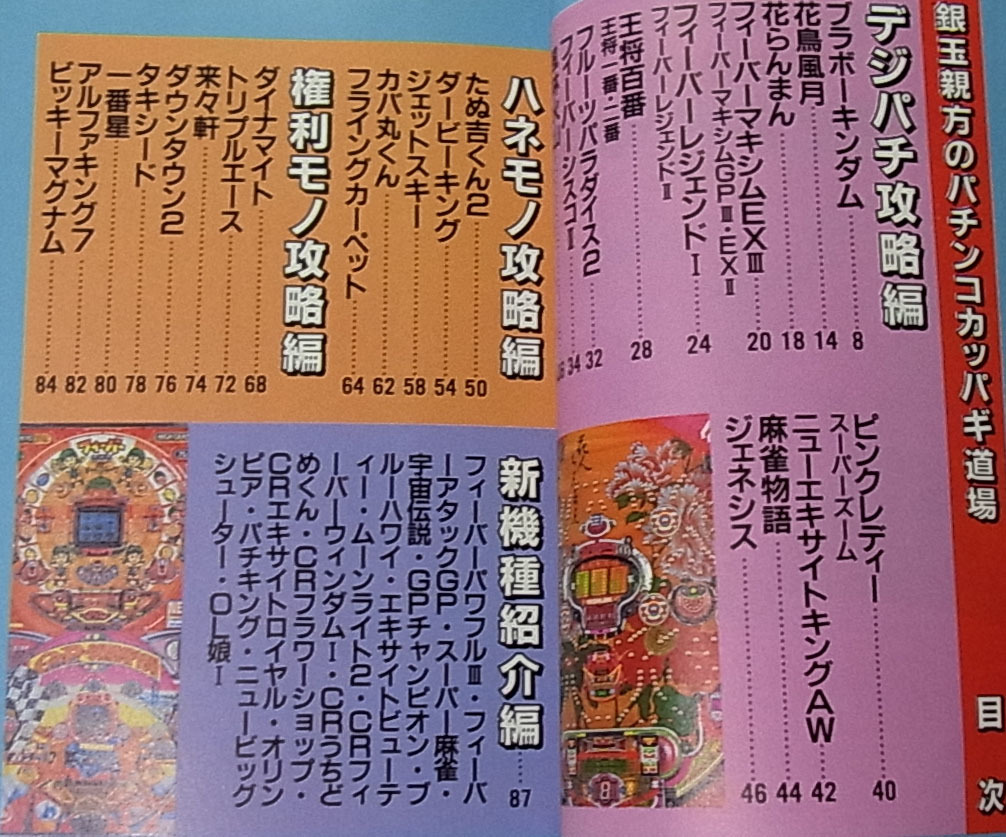 銀玉親方のパチンコカッパギ道場
目次
デジパチ攻略編
ブラボーキンダム……8
花鳥風月……14
花らんまん……18
フィーバーマキシムEXⅢ……20
フィーバーマキシムGPⅢ・EXⅡ
フィーバーレジェンドⅠ……24
フィーバーレジェンドⅡ
王将百番……28
王将一番・二番
フルーツパラダイス2……32
フィーバージスコⅠ……34
ピンクレディー……40
スーパーズーム
ニューエキサイトキングAW……42
麻雀物語……44
ジェネシス……46
ハネモノ攻略編
たぬ吉くん2……50
ダービーキング……54
ジェットスキー……58
カバ丸くん……62
フライングカーペット……64
権利モノ攻略編
ダイナマイト……68
トリプルエース……72
来々軒……74
ダウンタウン2……76
タキシード……78
一番星……80
アルファキング7……82
ビッキーマグナム……84
新機種紹介編……87
フィーバーパワフルⅢ・フィーバ
ーアタックGP・スーパー麻雀・
宇宙伝説・GPチャンピオン・ブ
ルーハワイ・エキサイトビューテ
ィー・ムーンライト2・CRフィ
ーバーウィンダムⅠ・CRうちど
めくん・CRフラワーショップ・
CRエキサイトロイヤル・オリン
ピア・パチキング・ニュービッグ
シューター・OL娘Ⅰ